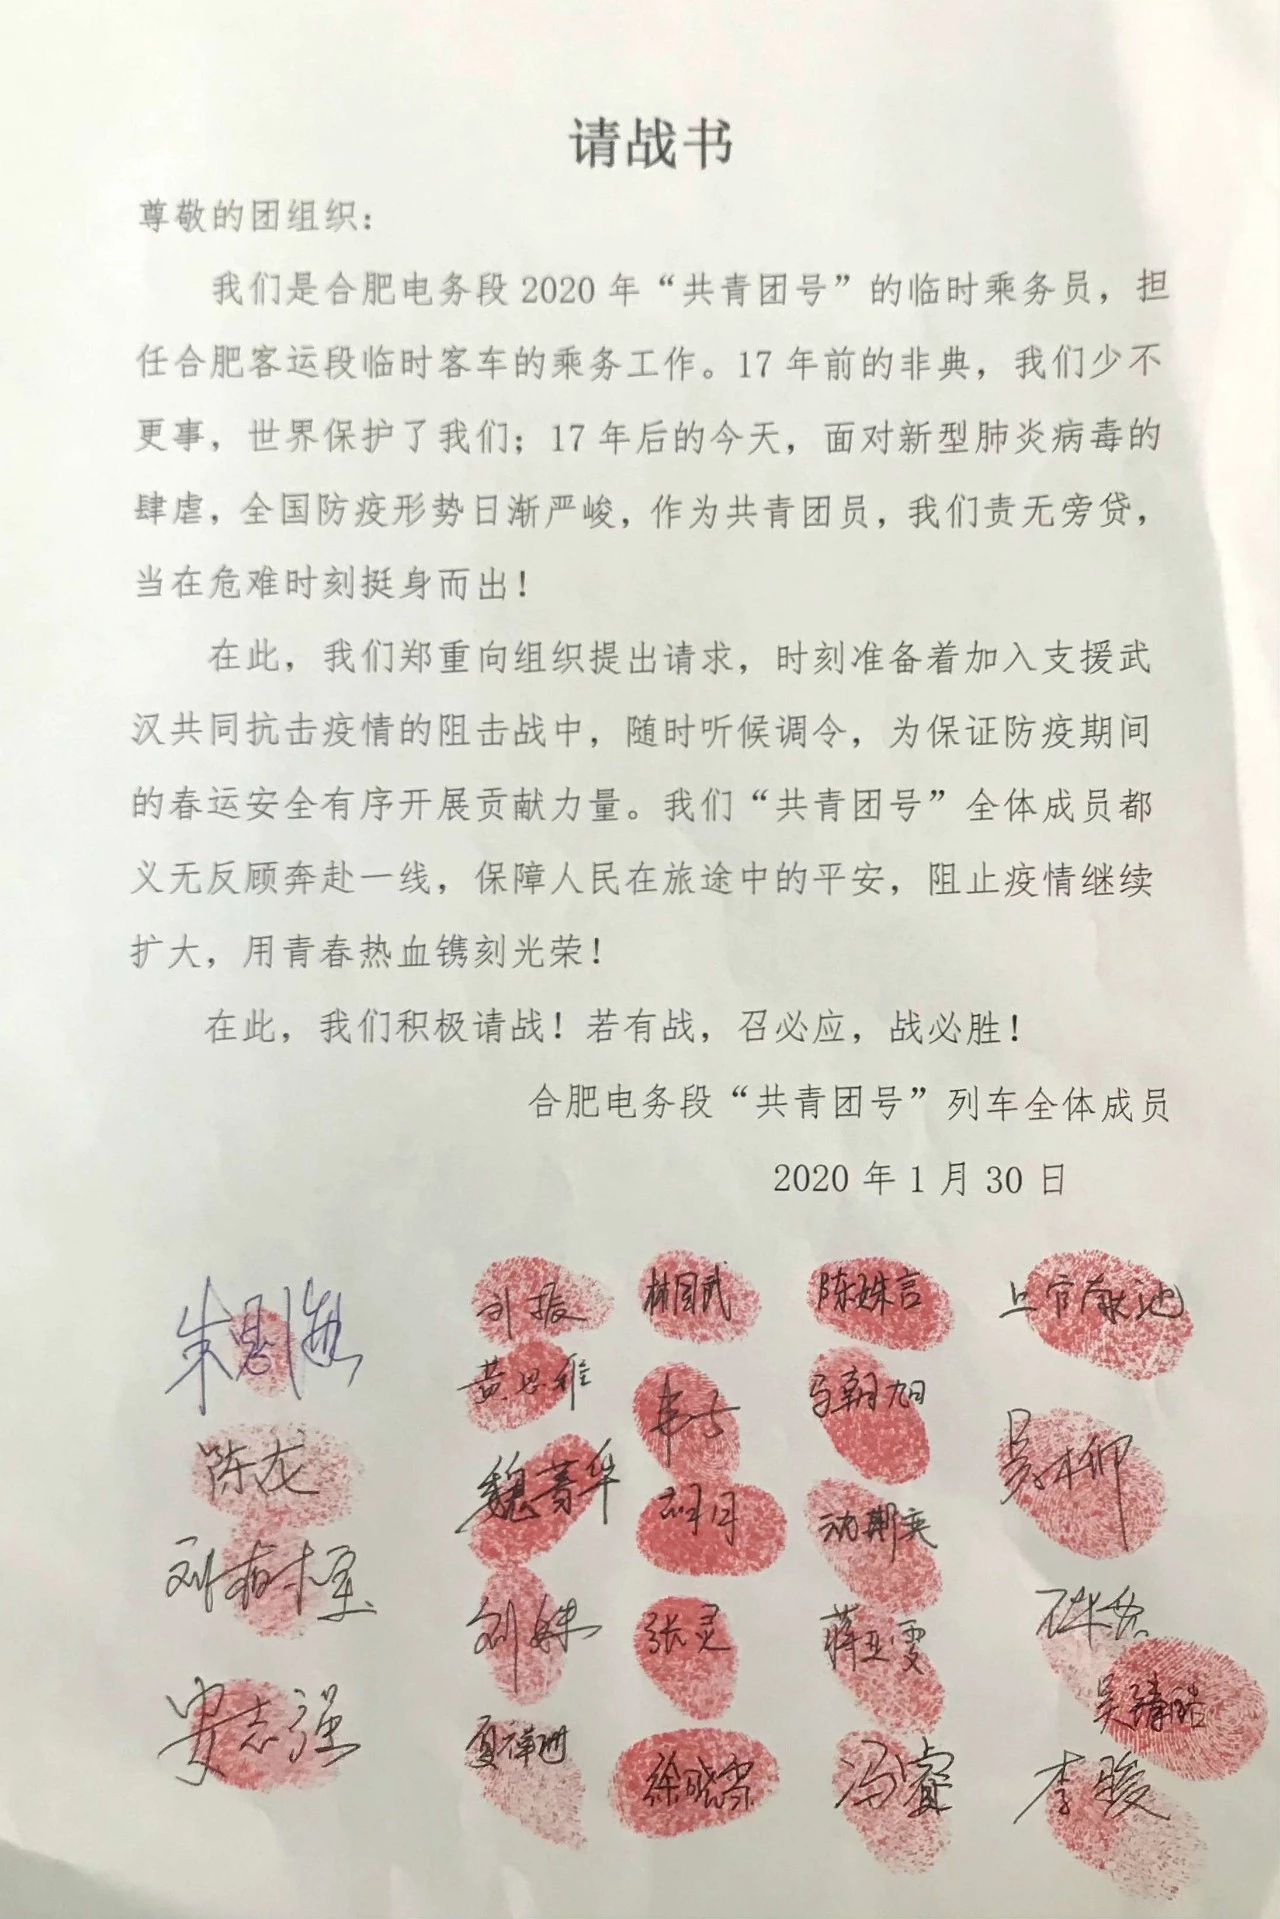 请战书
尊敬的团组织：
我们是合肥电务段 2020 年“共青团号”的临时乘务员，担
任合肥客运段临时客车的乘务工作。17 年前的非典，我们少不
更事，世界保护了我们；17 年后的今天，面对新型肺炎病毒的
肆虐，全国防疫形势日渐严峻，作为共青团员，我们责无旁贷，
当在危难时刻挺身而出！
在此，我们郑重向组织提出请求，时刻准备着加入支援武
汉共同抗击疫情的阻击战中，随时听候调令，为保证防疫期间
的春运安全有序开展贡献力量。我们“共青团号”全体成员都
义无反顾奔赴一线，保障人民在旅途中的平安，阻止疫情继续
扩大，用青春热血镌刻光荣！
在此，我们积极请战！若有战，召必应，战必胜！
合肥电务段“共青团号”列车全体成员
2020 年 1 月 30 日
刘振
林国武
陈姝言
上官献池
黄思维
马朝旭
陈龙
魏菁华
胡月
吴柳
刘姝
张灵
蒋亚雯
安志强
徐晓雰
冯睿
李骏